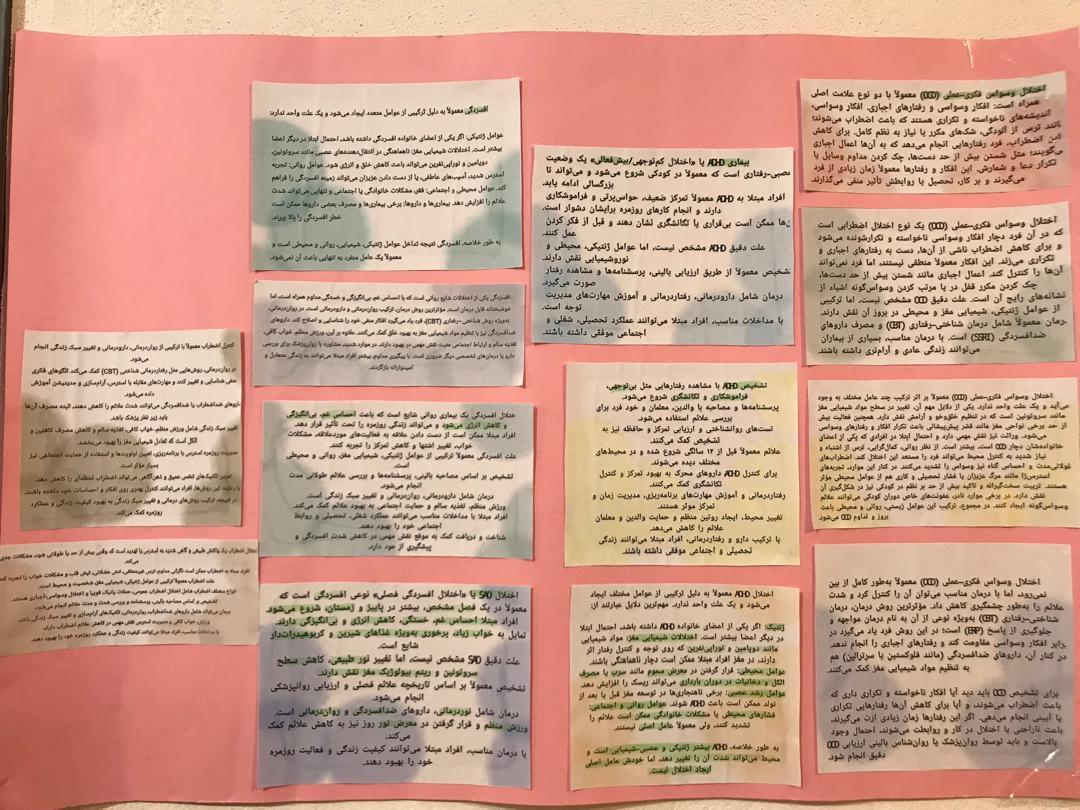 اختلال وسواس فکری-عملی (OCD) معمولاً با دو نوع علامت اصلی
همراه است: افکار وسواسی و رفتارهای اجباری. افکار وسواسی،
اندیشه‌های ناخواسته و تکراری هستند که باعث اضطراب می‌شوند؛
مانند ترس از آلودگی، شک‌های مکرر یا نیاز به نظم کامل. برای کاهش
این اضطراب، فرد رفتارهایی انجام می‌دهد که به آن‌ها اجبار
می‌گویند؛ مثل شستن بیش از حد دست‌ها، چک کردن مداوم وسایل یا
تکرار دعا و شمارش. این افکار و رفتارها معمولاً زمان زیادی از فرد
می‌گیرند و بر کار، تحصیل یا روابطش تأثیر منفی می‌گذارند.
اختلال وسواس فکری-عملی (OCD) یک نوع اختلال اضطرابی است
که در آن فرد دچار افکار وسواسی ناخواسته و تکرارشونده می‌شود
و برای کاهش اضطراب ناشی از آن‌ها، دست به رفتارهای اجباری و
تکراری می‌زند. این افکار معمولاً منطقی نیستند، اما فرد نمی‌تواند
آن‌ها را کنترل کند. اعمال اجباری مانند شستن بیش از حد دست‌ها،
چک کردن مکرر قفل در یا مرتب کردن وسواس‌گونه اشیاء از
نشانه‌های رایج آن است. علت دقیق OCD مشخص نیست، اما ترکیبی
از عوامل ژنتیکی، شیمیایی مغز و محیطی در بروز آن نقش دارند.
درمان معمولاً شامل درمان شناختی-رفتاری (CBT) و مصرف داروهای
ضدافسردگی (SSRI) است. با درمان مناسب، بسیاری از بیماران
می‌توانند زندگی عادی و آرام‌تری داشته باشند.
اختلال وسواس فکری-عملی (OCD) معمولاً بر اثر ترکیب چند عامل مختلف به وجود
می‌آید و یک علت واحد ندارد. یکی از دلایل مهم آن، تغییر در سطح مواد شیمیایی مغز
مانند سروتونین است که در تنظیم خلق‌وخو و آرامش نقش دارد. همچنین فعالیت بیش
از حد برخی نواحی مغز مانند قشر پیش‌پیشانی باعث تکرار افکار و رفتارهای وسواسی
می‌شود. وراثت نیز نقش مهمی دارد و احتمال ابتلا در افرادی که یکی از اعضای
خانواده‌شان دچار OCD است، بیشتر است. از نظر روانی، کمال‌گرایی، ترس از اشتباه و
نیاز شدید به کنترل محیط می‌تواند فرد را مستعد این اختلال کند. اضطراب‌های
طولانی‌مدت و احساس گناه نیز وسواس را تشدید می‌کنند. در کنار این موارد، تجربه‌های
استرس‌زا مانند مرگ عزیزان یا فشار تحصیلی و کاری هم از عوامل محیطی مؤثر
هستند. تربیت سخت‌گیرانه و تاکید بیش از حد بر نظم در کودکی نیز در شکل‌گیری آن
نقش دارد. در برخی موارد نادر، عفونت‌های خاص دوران کودکی می‌توانند علائم
وسواس‌گونه ایجاد کنند. در مجموع، ترکیب این عوامل زیستی، روانی و محیطی باعث
بروز و تداوم OCD می‌شود.
اختلال وسواس فکری-عملی (OCD) معمولاً به‌طور کامل از بین
نمی‌رود، اما با درمان مناسب می‌توان آن را کنترل کرد و شدت
علائم را به‌طور چشمگیری کاهش داد. مؤثرترین روش درمان، درمان
شناختی-رفتاری (CBT) به‌ویژه نوعی از آن به نام درمان مواجهه و
جلوگیری از پاسخ (ERP) است؛ در این روش فرد یاد می‌گیرد در
برابر افکار وسواسی مقاومت کند و رفتارهای اجباری را انجام ندهد.
در کنار آن، داروهای ضدافسردگی (مانند فلوکستین یا سرترالین) هم
به تنظیم مواد شیمیایی مغز کمک می‌کنند.
برای تشخیص OCD باید دید آیا افکار ناخواسته و تکراری داری که
باعث اضطراب می‌شوند، و آیا برای کاهش آن‌ها رفتارهای تکراری
یا آیینی انجام می‌دهی. اگر این رفتارها زمان زیادی ازت می‌گیرند،
باعث ناراحتی یا اختلال در کار و روابطت می‌شوند، احتمال وجود OCD
بالاست و باید توسط روان‌پزشک یا روان‌شناس بالینی ارزیابی
دقیق انجام شود.
بیماری ADHD یا «اختلال کم‌توجهی/بیش‌فعالی» یک وضعیت
عصبی-رفتاری است که معمولاً در کودکی شروع می‌شود و می‌تواند تا
بزرگسالی ادامه یابد.
افراد مبتلا به ADHD معمولاً تمرکز ضعیف، حواس‌پرتی و فراموشکاری
دارند و انجام کارهای روزمره برایشان دشوار است.
آن‌ها ممکن است بی‌قراری یا تکانشگری نشان دهند و قبل از فکر کردن
عمل کنند.
علت دقیق ADHD مشخص نیست، اما عوامل ژنتیکی، محیطی و
نوروشیمیایی نقش دارند.
تشخیص معمولاً از طریق ارزیابی بالینی، پرسشنامه‌ها و مشاهده رفتار
صورت می‌گیرد.
درمان شامل دارودرمانی، رفتاردرمانی و آموزش مهارت‌های مدیریت
توجه است.
با مداخلات مناسب، افراد مبتلا می‌توانند عملکرد تحصیلی، شغلی و
اجتماعی موفقی داشته باشند.
تشخیص ADHD با مشاهده رفتارهایی مثل بی‌توجهی،
فراموشکاری و تکانشگری شروع می‌شود.
پرسشنامه‌ها و مصاحبه با والدین، معلمان و خود فرد برای
بررسی علائم استفاده می‌شود.
تست‌های روانشناختی و ارزیابی تمرکز و حافظه نیز به
تشخیص کمک می‌کنند.
علائم معمولاً قبل از ۱۲ سالگی شروع شده و در محیط‌های
مختلف دیده می‌شوند.
برای کنترل ADHD داروهای محرک به بهبود تمرکز و کنترل
تکانشگری کمک می‌کنند.
رفتاردرمانی و آموزش مهارت‌های برنامه‌ریزی، مدیریت زمان و
تمرکز موثر هستند.
تغییر محیط، ایجاد روتین منظم و حمایت والدین و معلمان
علائم را کاهش می‌دهد.
با ترکیب دارو و رفتاردرمانی، افراد مبتلا می‌توانند زندگی
تحصیلی و اجتماعی موفقی داشته باشند.
اختلال ADHD معمولاً به دلیل ترکیبی از عوامل مختلف ایجاد
می‌شود و یک علت واحد ندارد. مهم‌ترین دلایل عبارتند از:
ژنتیک: اگر یکی از اعضای خانواده ADHD داشته باشد، احتمال ابتلا
در دیگر اعضا بیشتر است. اختلالات شیمیایی مغز: مواد شیمیایی
مانند دوپامین و نوراپی‌نفرین که روی توجه و کنترل رفتار اثر
دارند، در مغز افراد مبتلا ممکن است دچار ناهماهنگی باشند.
عوامل محیطی: قرار گرفتن در معرض سموم مانند سرب یا مصرف
الکل و دخانیات در دوران بارداری می‌تواند ریسک را افزایش دهد.
عوامل رشد عصبی: برخی ناهنجاری‌ها در توسعه مغز قبل یا بعد از
تولد ممکن است باعث ADHD شوند. عوامل روانی و اجتماعی:
فشارهای محیطی یا مشکلات خانوادگی ممکن است علائم را
تشدید کنند، ولی معمولاً عامل اصلی نیستند.
به طور خلاصه، ADHD بیشتر ژنتیکی و عصبی-شیمیایی است و
محیط می‌تواند شدت آن را تغییر دهد، اما خودش عامل اصلی
ایجاد اختلال نیست.
افسردگی معمولاً به دلیل ترکیبی از عوامل متعدد ایجاد می‌شود و یک علت واحد ندارد:
عوامل ژنتیکی: اگر یکی از اعضای خانواده افسردگی داشته باشد، احتمال ابتلا در دیگر اعضا
بیشتر است. اختلالات شیمیایی مغز: ناهماهنگی در انتقال‌دهنده‌های عصبی مانند سروتونین،
دوپامین و نوراپی‌نفرین می‌تواند باعث کاهش خلق و انرژی شود. عوامل روانی: تجربه
استرس شدید، آسیب‌های عاطفی، یا از دست دادن عزیزان می‌تواند زمینه افسردگی را فراهم
کند. عوامل محیطی و اجتماعی: فقر، مشکلات خانوادگی یا اجتماعی و تنهایی می‌تواند شدت
علائم را افزایش دهد. بیماری‌ها و داروها: برخی بیماری‌ها و مصرف بعضی داروها ممکن است
خطر افسردگی را بالا ببرند.
به طور خلاصه، افسردگی نتیجه تداخل عوامل ژنتیکی، شیمیایی، روانی و محیطی است و
معمولاً یک عامل منفرد به تنهایی باعث آن نمی‌شود.
افسردگی یکی از اختلالات شایع روانی است که با احساس غم، بی‌انگیزگی و خستگی مداوم همراه است، اما
خوشبختانه قابل درمان است. مؤثرترین روش درمان، ترکیب روان‌درمانی و دارودرمانی است. در روان‌درمانی،
به‌ویژه روش شناختی-رفتاری (CBT)، فرد یاد می‌گیرد افکار منفی خود را شناسایی و اصلاح کند. داروهای
ضدافسردگی نیز با تنظیم مواد شیمیایی مغز به بهبود خلق کمک می‌کنند. علاوه بر این، ورزش منظم، خواب کافی،
تغذیه سالم و ارتباط اجتماعی مثبت نقش مهمی در بهبود دارند. در موارد شدید، مشاوره با روان‌پزشک برای بررسی
دارو یا درمان‌های تخصصی دیگر ضروری است. با پیگیری مداوم، بیشتر افراد مبتلا می‌توانند به زندگی متعادل و
امیدوارانه بازگردند.
اختلال افسردگی یک بیماری روانی شایع است که باعث احساس غم، بی‌انگیزگی
و کاهش انرژی می‌شود و می‌تواند زندگی روزمره را تحت تأثیر قرار دهد.
افراد مبتلا ممکن است از دست دادن علاقه به فعالیت‌های موردعلاقه، مشکلات
خواب، تغییر اشتها و کاهش تمرکز را تجربه کنند.
علت افسردگی معمولاً ترکیبی از عوامل ژنتیکی، شیمیایی مغز، روانی و محیطی
است.
تشخیص بر اساس مصاحبه بالینی، پرسشنامه‌ها و بررسی علائم طولانی مدت
انجام می‌شود.
درمان شامل دارودرمانی، روان‌درمانی و تغییر سبک زندگی است.
ورزش منظم، تغذیه سالم و حمایت اجتماعی به بهبود علائم کمک می‌کند.
افراد مبتلا با مداخلات مناسب می‌توانند عملکرد شغلی، تحصیلی و روابط
اجتماعی خود را بهبود دهند.
شناخت و دریافت کمک به موقع نقش مهمی در کاهش شدت افسردگی و
پیشگیری از عود دارد.
اختلال SAD یا «اختلال افسردگی فصلی» نوعی افسردگی است که
معمولاً در یک فصل مشخص، بیشتر در پاییز و زمستان، شروع می‌شود.
افراد مبتلا احساس غم، خستگی، کاهش انرژی و بی‌انگیزگی دارند.
تمایل به خواب زیاد، پرخوری به‌ویژه غذاهای شیرین و کربوهیدرات‌دار
شایع است.
علت دقیق SAD مشخص نیست، اما تغییر نور طبیعی، کاهش سطح
سروتونین و ریتم بیولوژیک مغز نقش دارند.
تشخیص معمولاً بر اساس تاریخچه علائم فصلی و ارزیابی روانپزشکی
انجام می‌شود.
درمان شامل نوردرمانی، داروهای ضدافسردگی و روان‌درمانی است.
ورزش منظم و قرار گرفتن در معرض نور روز نیز به کاهش علائم کمک
می‌کند.
با درمان مناسب، افراد مبتلا می‌توانند کیفیت زندگی و فعالیت روزمره
خود را بهبود دهند.
کنترل اضطراب معمولاً با ترکیبی از روان‌درمانی، دارودرمانی و تغییر سبک زندگی انجام
می‌شود.
در روان‌درمانی، روش‌هایی مثل رفتاردرمانی شناختی (CBT) کمک می‌کند الگوهای فکری
منفی شناسایی و تغییر کنند و مهارت‌های مقابله با استرس، آرام‌سازی و مدیتیشن آموزش
داده می‌شود.
داروهای ضداضطراب یا ضدافسردگی می‌توانند شدت علائم را کاهش دهند، البته مصرف آن‌ها
باید زیر نظر پزشک باشد.
تغییر سبک زندگی شامل ورزش منظم، خواب کافی، تغذیه سالم و کاهش مصرف کافئین و
الکل است که تعادل شیمیایی مغز را بهبود می‌بخشد.
مدیریت روزمره استرس با برنامه‌ریزی، تعیین اولویت‌ها و استفاده از حمایت اجتماعی نیز
بسیار مؤثر است.
تمرین تکنیک‌های تنفس عمیق و ذهن‌آگاهی می‌تواند اضطراب لحظه‌ای را کاهش دهد.
با رعایت این روش‌ها، افراد می‌توانند کنترل بهتری روی افکار و احساسات خود داشته باشند.
در نتیجه، ترکیب روش‌های درمانی و تغییر سبک زندگی به بهبود کیفیت زندگی و عملکرد
روزمره کمک می‌کند.
اختلال اضطراب یک واکنش طبیعی و گاهی شدید به استرس یا تهدید است که وقتی بیش از حد یا طولانی شود، مشکلات جدی
می‌کند.
افراد مبتلا به اضطراب ممکن است نگرانی مداوم، ترس غیرمنطقی، تنش عضلانی، تپش قلب و مشکلات خواب را تجربه کنند
علت اضطراب معمولاً ترکیبی از عوامل ژنتیکی، شیمیایی مغز، شخصیت و محیط است.
انواع مختلف اضطراب شامل اختلال اضطراب عمومی، حملات پانیک، فوبیا و اختلال وسواسی-اجباری هستند.
تشخیص بر اساس مصاحبه بالینی، پرسشنامه و بررسی شدت و مدت علائم انجام می‌شود.
درمان می‌تواند شامل داروهای ضداضطراب، روان‌درمانی، تکنیک‌های آرام‌سازی و تغییر سبک زندگی باشد.
ورزش، خواب کافی و مدیریت استرس نقش مهمی در کاهش علائم اضطراب دارند.
با مداخلات مناسب، افراد مبتلا می‌توانند کیفیت زندگی و عملکرد روزمره خود را بهبود دهند.